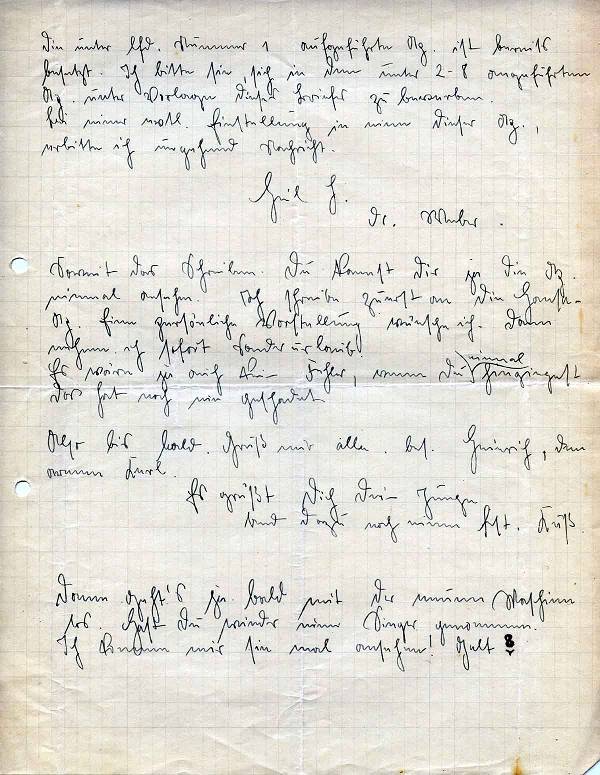 Die unter lfd. Nummer 1 aufgeführte Az. ist bereits
besetzt. Ich bitte Sie, sich in den unter 2-8 angeführten
Az. unter Vorlage dieses Briefes zu bewerben.
Bei einer evtl. Einstellung in einer dieser Az.,
erbitte ich umgehend Nachricht.
Heil H.
Dr. Weber.
Soweit das Schreiben. Du kannst Dir ja die Az.
einmal ansehn. Ich schreibe zuerst an die
Az. Eine persönliche Vorstellung wünsche ich. Dann
nehme ich sofort Sonderurlaub.
Es wäre ja auch kein Fehler, wenn Du einmal hingingest
Das hat noch nie geschadet.
Also bis bald. Grüß mir alle. bes. Heinrich, den
armen Kerl.
Es grüßt Dich Dein Junge
und dazu noch einen fest. Kuß.
Dann geht's ja bald mit der neuen Maschine
los. Hast Du wieder eine Singer genommen.
Ich komme mir sie mal ansehen! Gelt ?